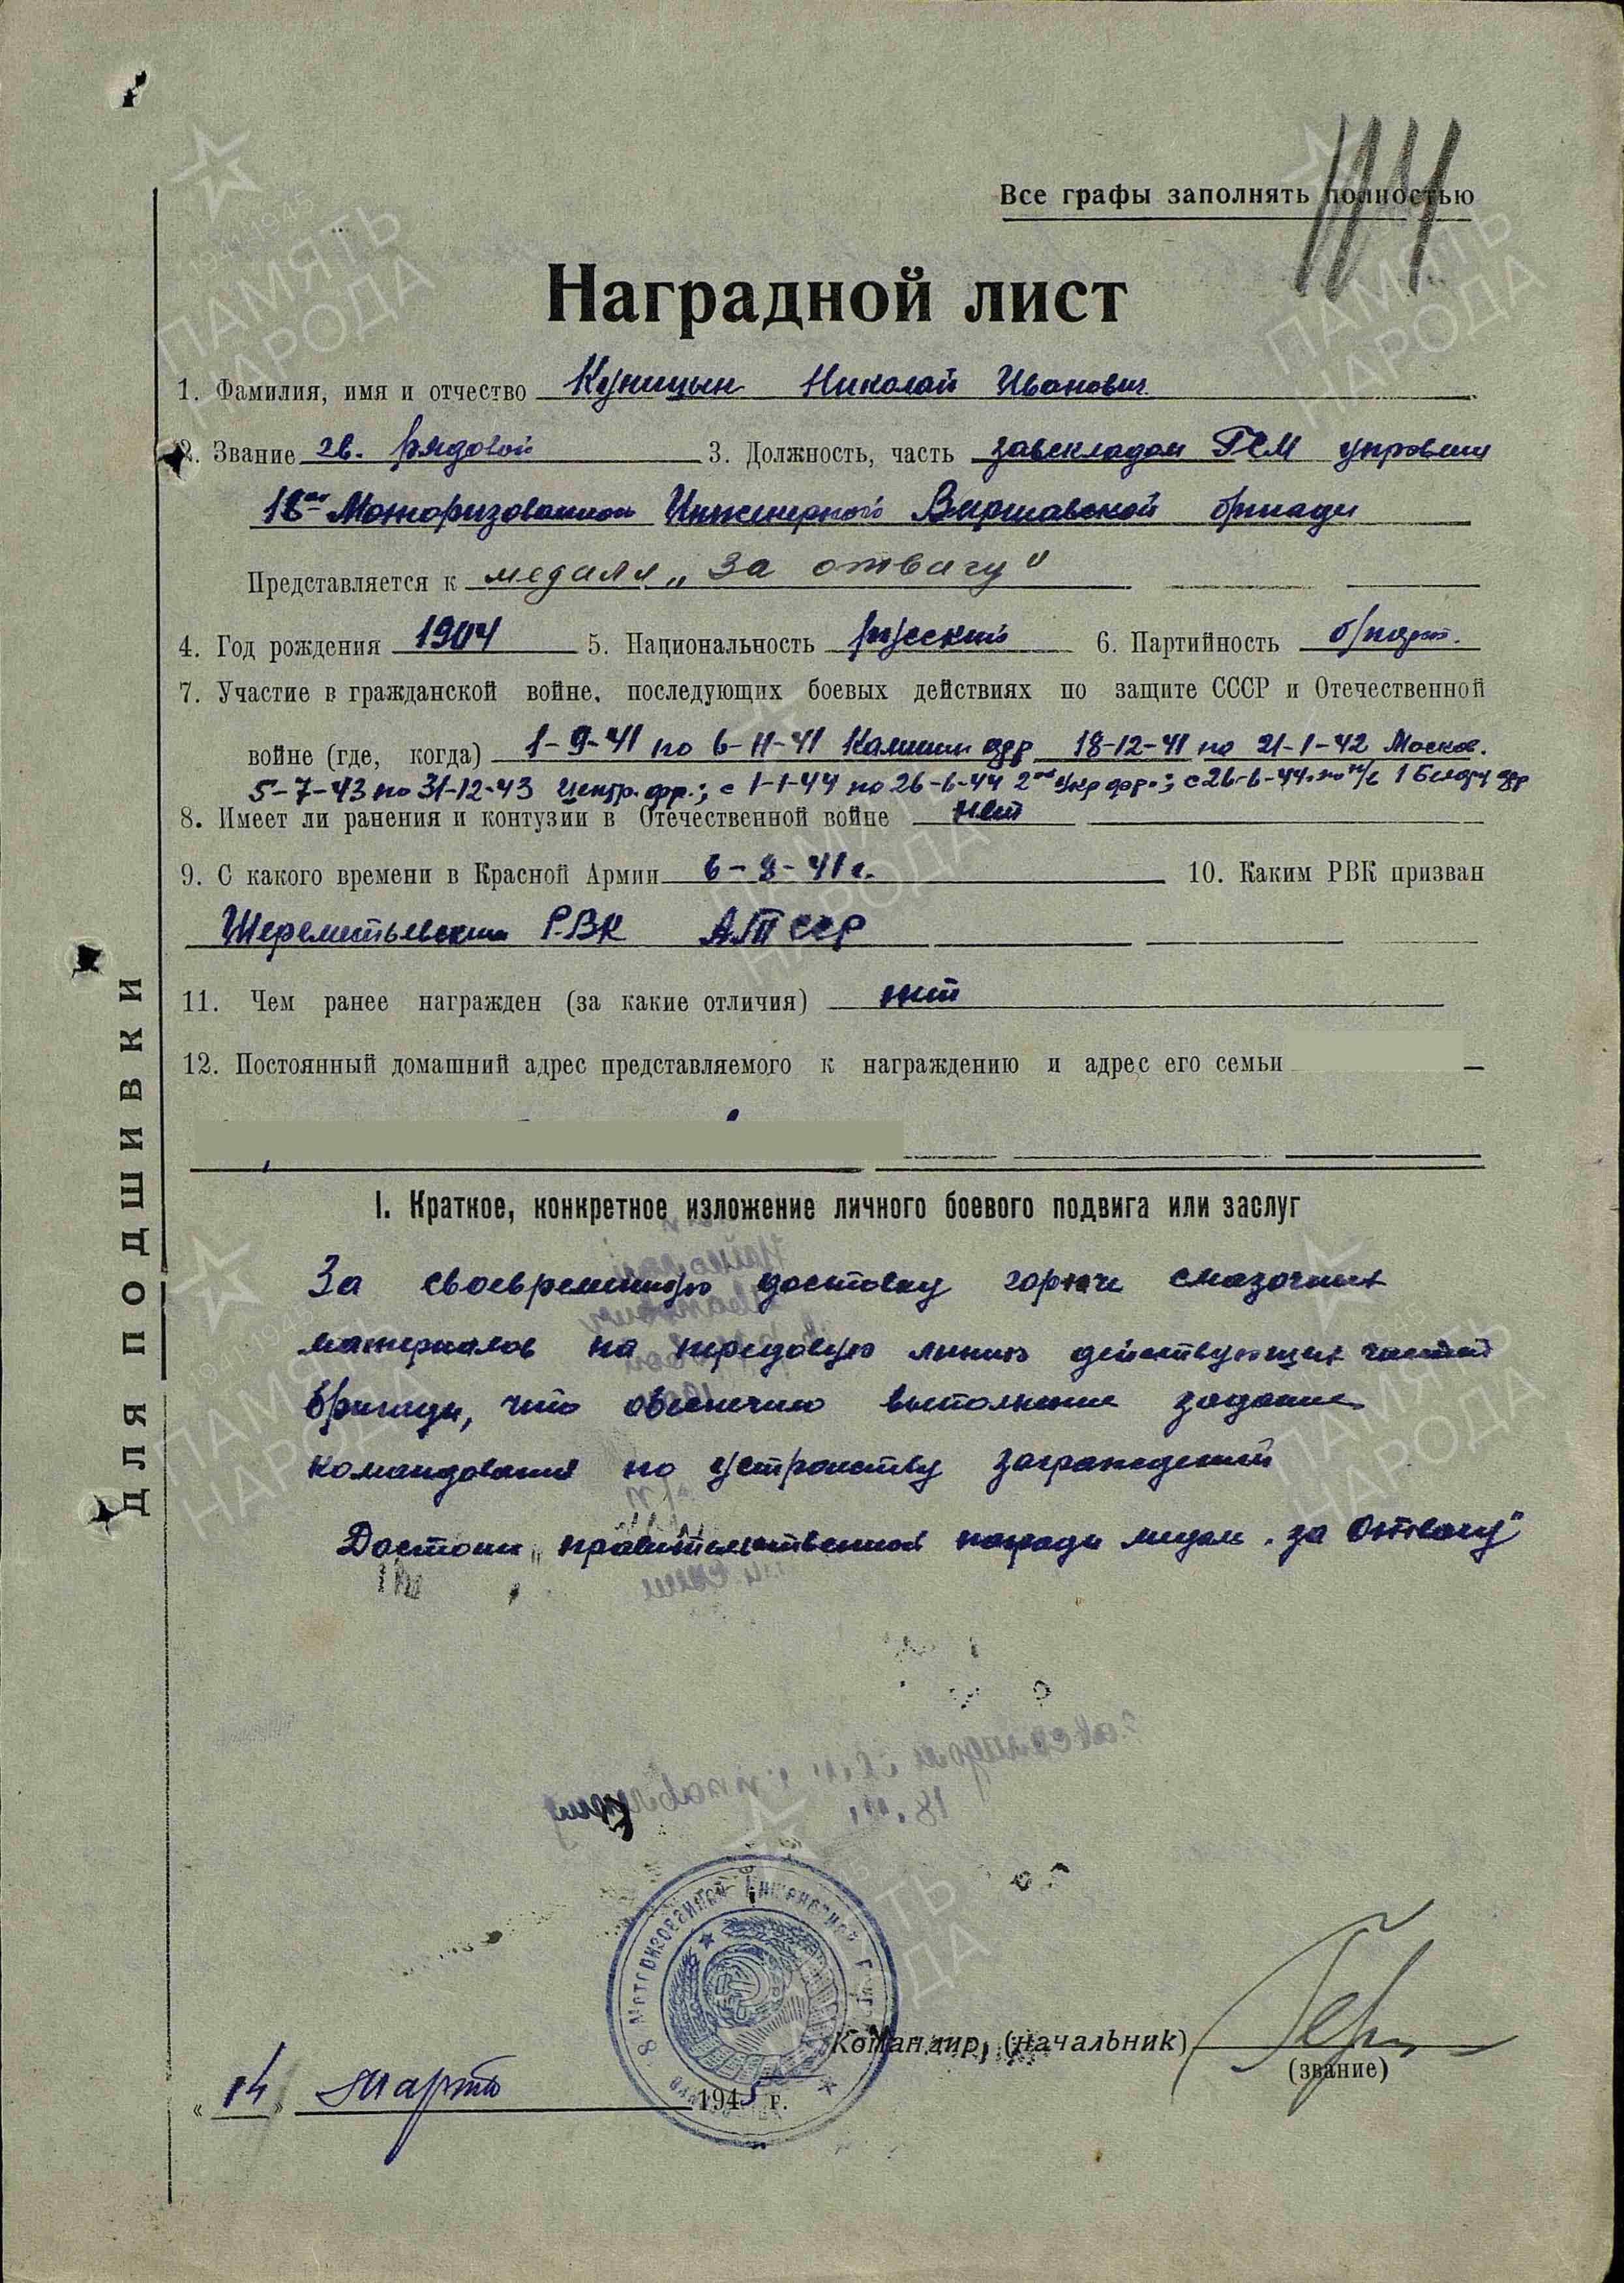 114
Все графы заполнять полностью
Наградной лист
1. Фамилия, имя и отчество Куницын Николай Иванович
2. Звание гв. рядовой 3. Должность, часть завскладом ГСМ
18ой Моторизованной Инженерной Варшавской бригады
Представляется к медали „За отвагу"
4. Год рождения 1904 5. Национальность русский 6. Партийность б/парт.
7. Участие в гражданской войне, последующих боевых действиях по защите СССР и Отечественной
войне (где, когда) 1-9-41 по 6-11-41 Калинин фр 18-12-41 по 21-1-42 Москов.
5-7-43 по 31-12-43 Центр. фр.; с 1-1-44 по 26-6-44 2ой Укр фр.; с 26-6-44 по н/в 1 Белору фр
8. Имеет ли ранения и контузии в Отечественной войне нет
9. С какого времени в Красной Армии 6-9-41 г. 10. Каким РВК призван
Шереметьевским РВК АТССР
11. Чем ранее награжден (за какие отличия) нет
12. Постоянный домашний адрес представляемого к награждению и адрес его семьи
I. Краткое, конкретное изложение личного боевого подвига или заслуг
За своевременную доставку горюче смазочных
материалов на передовую линию действующих частей
бригады, что обеспечило выполнение задание
командования по устройству заграждений
Достоин правительственной награды медаль „за Отвагу"
Командир, (начальник)
(звание)
„14" марта 1945 г.
ДЛЯ ПОДШИВКИ
ПАМЯТЬ НАРОДА